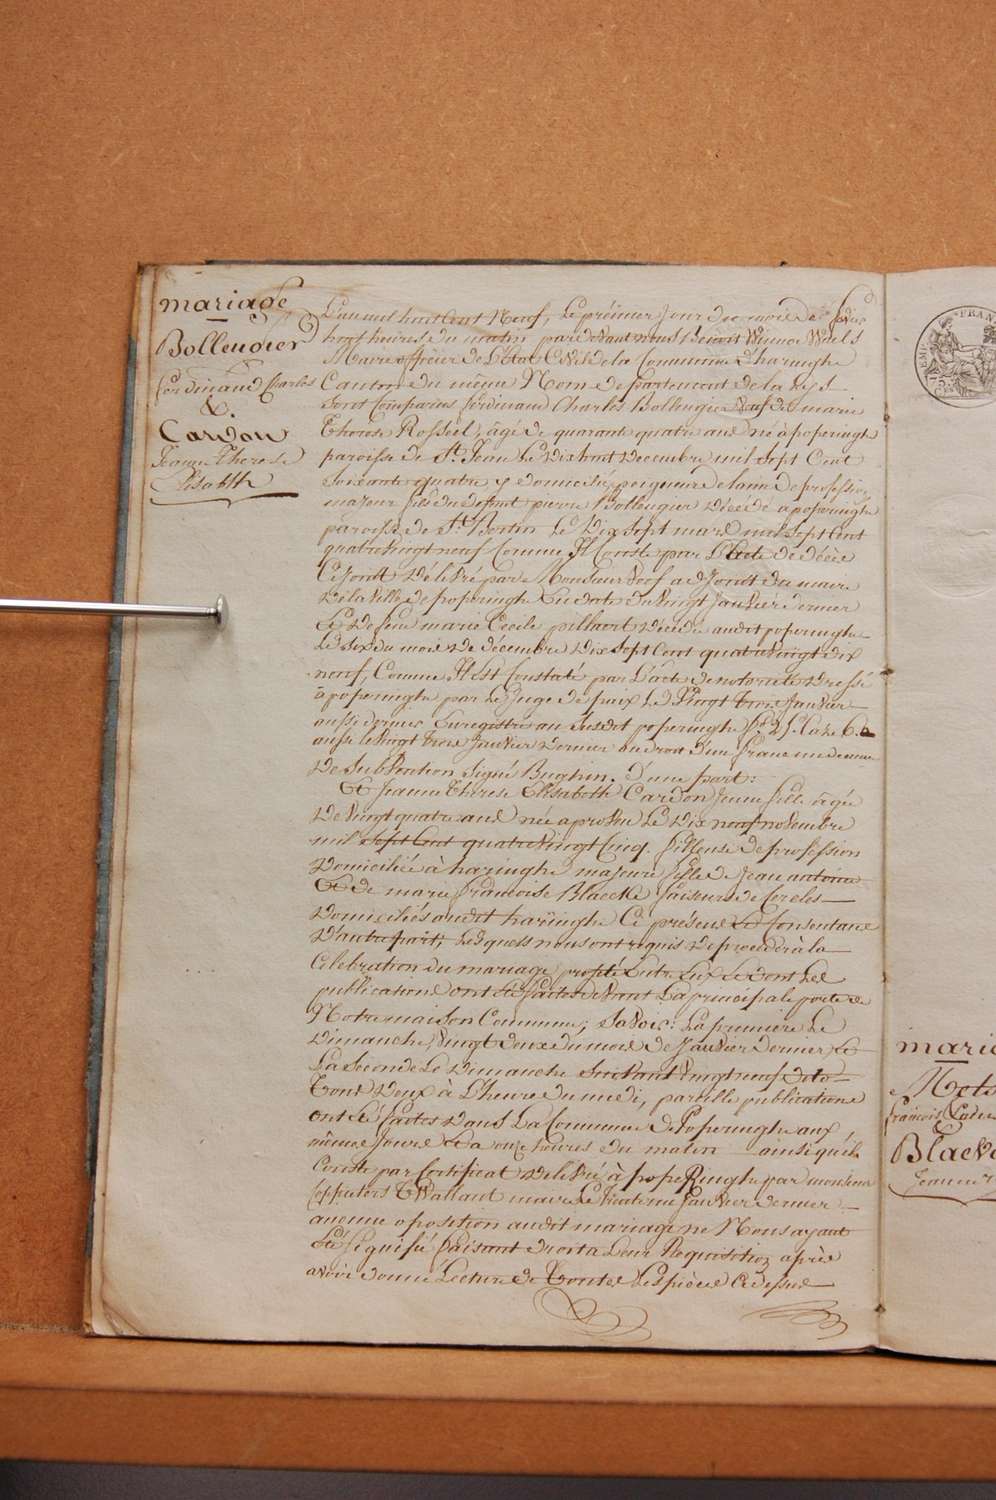 mariage
Bolleugier
ferdinand Charles
&.
Cardon
Jeanne Therese
Elisabeth
L'an mil huit Cent Neuf, Le prémier Jour du mois de
huit heures du matin pardevant nous Benoit Winnoc Waels
Maire officier de L'état Civil de la Commune D'haringhe
Canton du même Nom departement de la Lys
sont Comparus ferdinand Charles Bolleugier veuf de marie
Therese Rosseel, âgé de quarante quatre ans né à poperinghe
paroisse de St. Jean Le Dix huit Decembre mil Sept Cent
Soixante quatre y domicilié, peigneur de laine de profession
majeur fils du défunt pierre Bolleugier Décédé a poperinghe
paroisse de St. Bertin le Dix Sept mars mil Sept Cent
quatre Vingt neuf Comme Il Conste par L'acte de décès
Cijoint Délivré par Monsieur adjoint du maire
De la Ville de poperinghe En date du Vingt Janvier dernier
Et De feue marie Cecile pilhart Décédé audit poperinghe
Le Six du mois De décembre Dix Sept Cent quatre Vingt Dix
neuf, Comme Il Est Constaté par L'acte de notorieté Dressé
à poperinghe par Le Juge de paix Le Vingt trois Janvier
aussi dernier Enregistré au Susdit poperinghe fo. 25 Case 6.
aussi le Vingt trois Janvier Dernier au droit d'un franc
De Subvention Signé Bughin. D'une part:
Et Jeanne Therese Elisabeth Cardon Jeune fille âgée
De Vingt quatre ans née a proven Le Dix neuf novembre
mil Sept Cent quatre Vingt Cinq. fileuse de profession
Domiciliée à haringhe majeure fille de Jean antoine
Et de marie francoise Blaecke faiseurs de Cercles
Domiciliés audit haringhe Ci présens Et Consentans
D'autre part; Lesquels nous ont requis De proceder à la
Célébration du mariage projeté Entre Eux Et Dont Les
publications ont été faites devant La principale porte de
Notre maison Commune; Savoir: La premiere Le
Dimanche Vingt deux du mois de Janvier dernier, Et
La Seconde Le Dimanche Suivant Vingt neuf dito
Tout Deux à L'heure du midi, pareille publications
ont été faites Dans La Commune de Poperinghe aux
même Jours Et a onze heures du matin ainsi qu'il
Conste par Certificat Délivré à popeRinghe par monsieur
maire Le trentieme Janvier dernier
aucune oposition audit mariage ne Nous ayant
Eté Signifié faisant droit à Leur Requisition après
avoir donné Lecture de Toutes Les pièces Cidessus
mari
François
Blaev
Jeanne